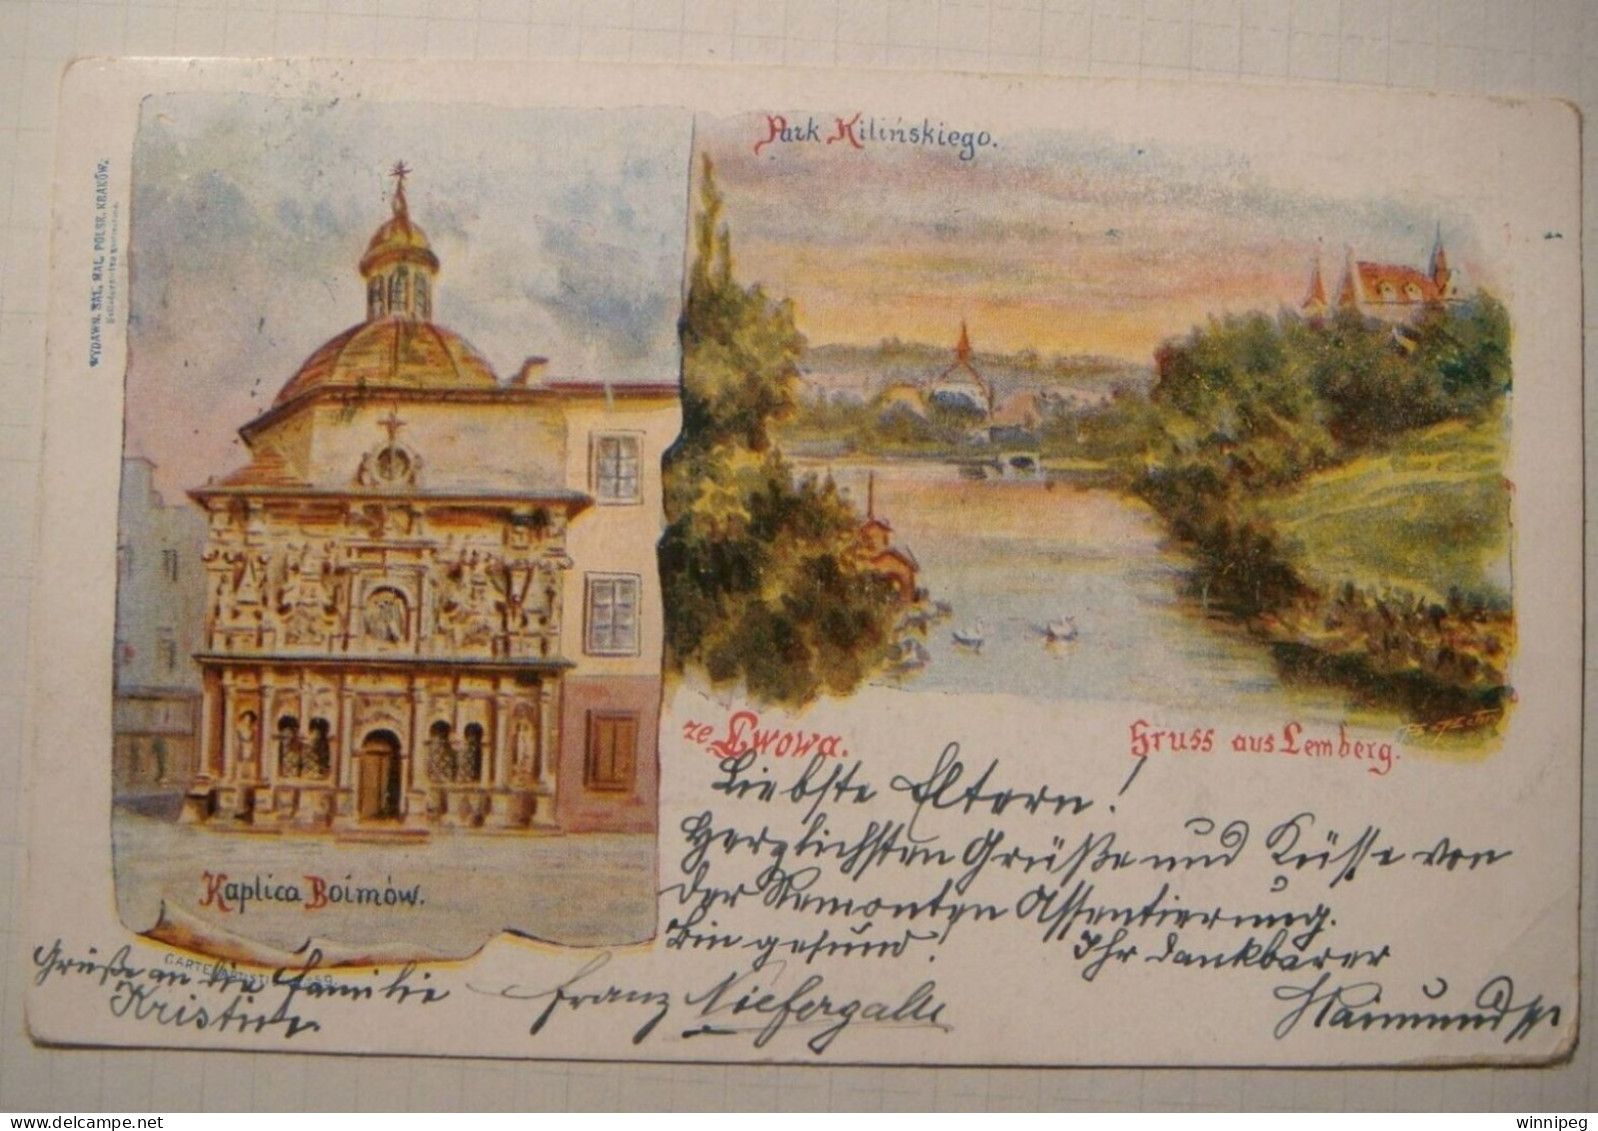 WYDAWN. SAL. MAL. POLSK. KRAKÓW.
Park Kilińskiego.
ze Lwowa.
Gruss aus Lemberg.
Kaplica Boimów.
Liebste Eltern!
Herzlichsten Grüße und Küsse von
der Remonten Assentierung.
Bin gesund!
Ihr dankbarer
Raimund
Grüße an die Familie
Kristin
Franz Niefergall
winnipeg